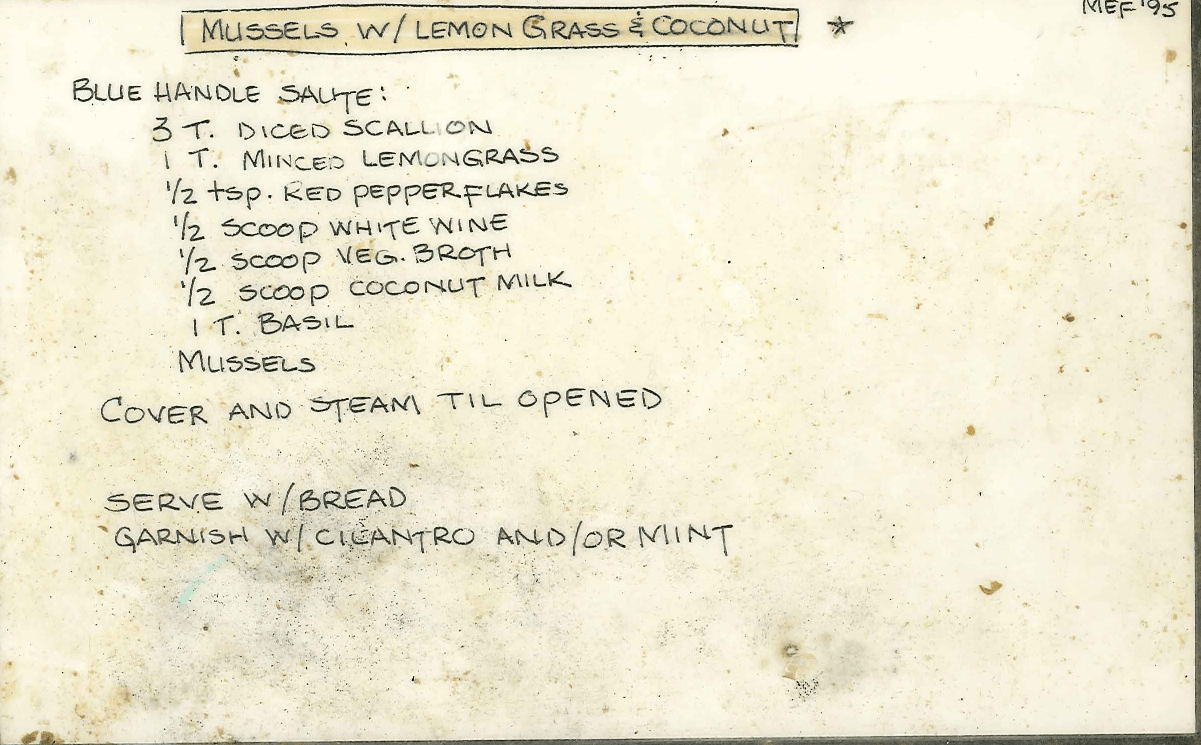 MEF '95
MUSSELS W/ LEMON GRASS & COCONUT *
BLUE HANDLE SAUTE:
3 T. DICED SCALLION
1 T. MINCED LEMONGRASS
1/2 tsp. RED PEPPERFLAKES
1/2 SCOOP WHITE WINE
1/2 SCOOP VEG. BROTH
1/2 SCOOP COCONUT MILK
1 T. BASIL
MUSSELS
COVER AND STEAM TIL OPENED
SERVE W/BREAD
GARNISH W/ CILANTRO AND/OR MINT